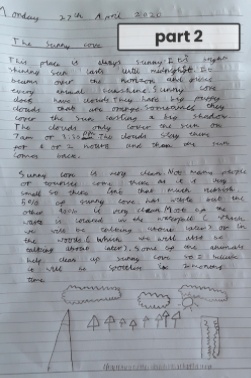 Monday 27th April 2020
part 2
The Sunny cove
This place is always sunny. It's
shining sun lasts until midnight. It
over the horizon and gives
every animal sunshine. Sunny cove
does have clouds. They have big puffy
clouds that are orange. Sometimes they
cover the sun casting a big shadow
The clouds only cover the sun on
7am or 3:30pm. The clouds stay there
for 1 or 2 hours and then the sun
comes back.
Sunny cove is very clean. Not many people
or tourists come there as it is very
small so there isn't that much
5% of sunny cove has waste but the
other 95% is very clean. Most of the
waste is placed in the waterfall is which
we will be talking about later on in
the woods (which we will also be
talking about later). Some of the animals
help clean up sunny cove so
it will be spotless
time